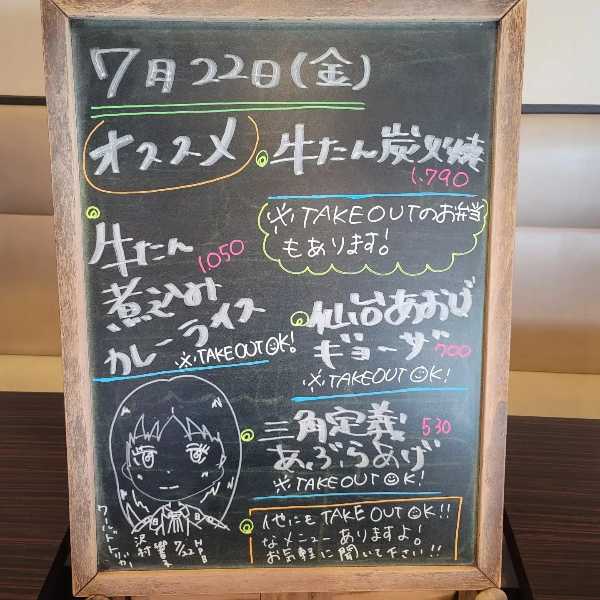 7月22日(金)
オススメ
牛たん炭火焼
1,790
※TAKEOUTのお弁当
もあります!
牛たん
煮込み
カレーライス
1,050
※TAKEOUT OK!
仙台あおば
ギョーザ
700
※TAKEOUT OK!
三角定義
あぶらあげ
530
※TAKEOUT OK!
他にもTAKEOUT OK!!
なメニューありますよ!
お気軽に聞いて下さい!!
ワールドトリガー
沢村響子
7/22 HPB